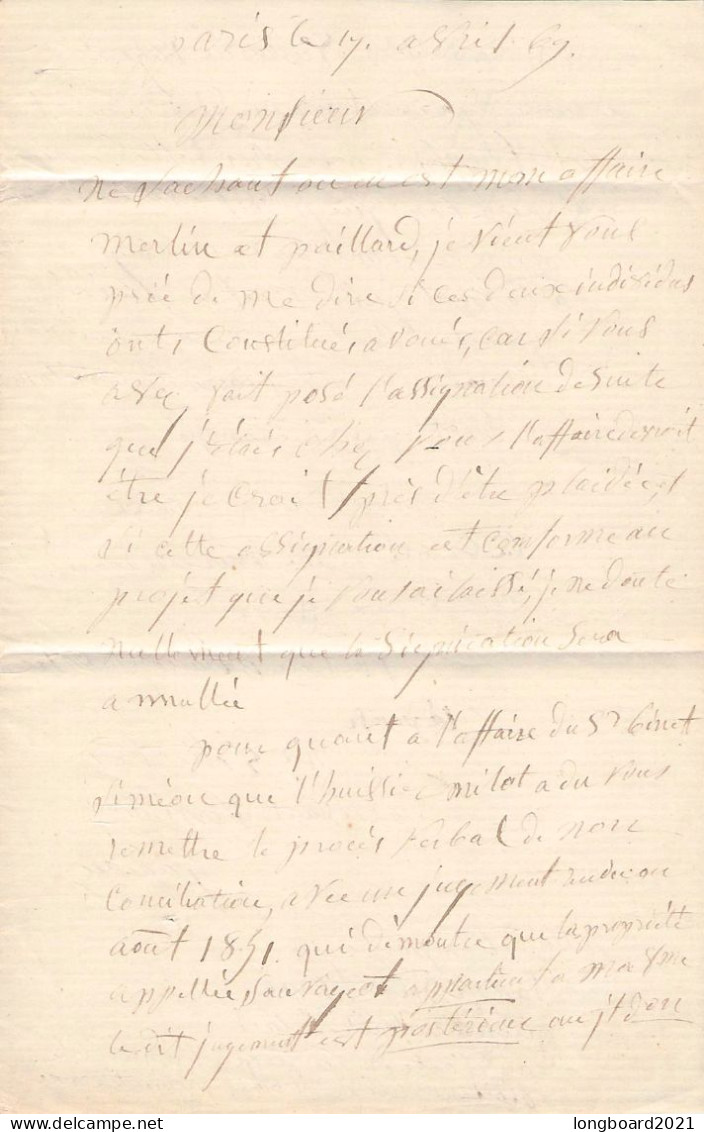 Paris le 17. avril 69.
Monsieur
ne sachant ou en est mon affaire
Merlin et paillard, je vient vous
prié de me dire si ces deux individus
onts Constitués avoués, car si vous
avez fait posé l'assignation de suite
que j'étais chez vous l'affaire devrait
être je crois près d'être plaidée, et
si cette assignation est conforme au
projet que je vous ai laissé, je ne doute
nullement que la signication sera
annullée
pour quant a l'affaire du Sr binet
Siméon que l'huissier milot a du vous
remettre le procès verbal de non
Conciliation, avec un jugement rendu en
août 1851. qui démontre que la propriété
appellée Sauvageot appartient a
le dit jugement est postérieur au jt d'en
longboard2021